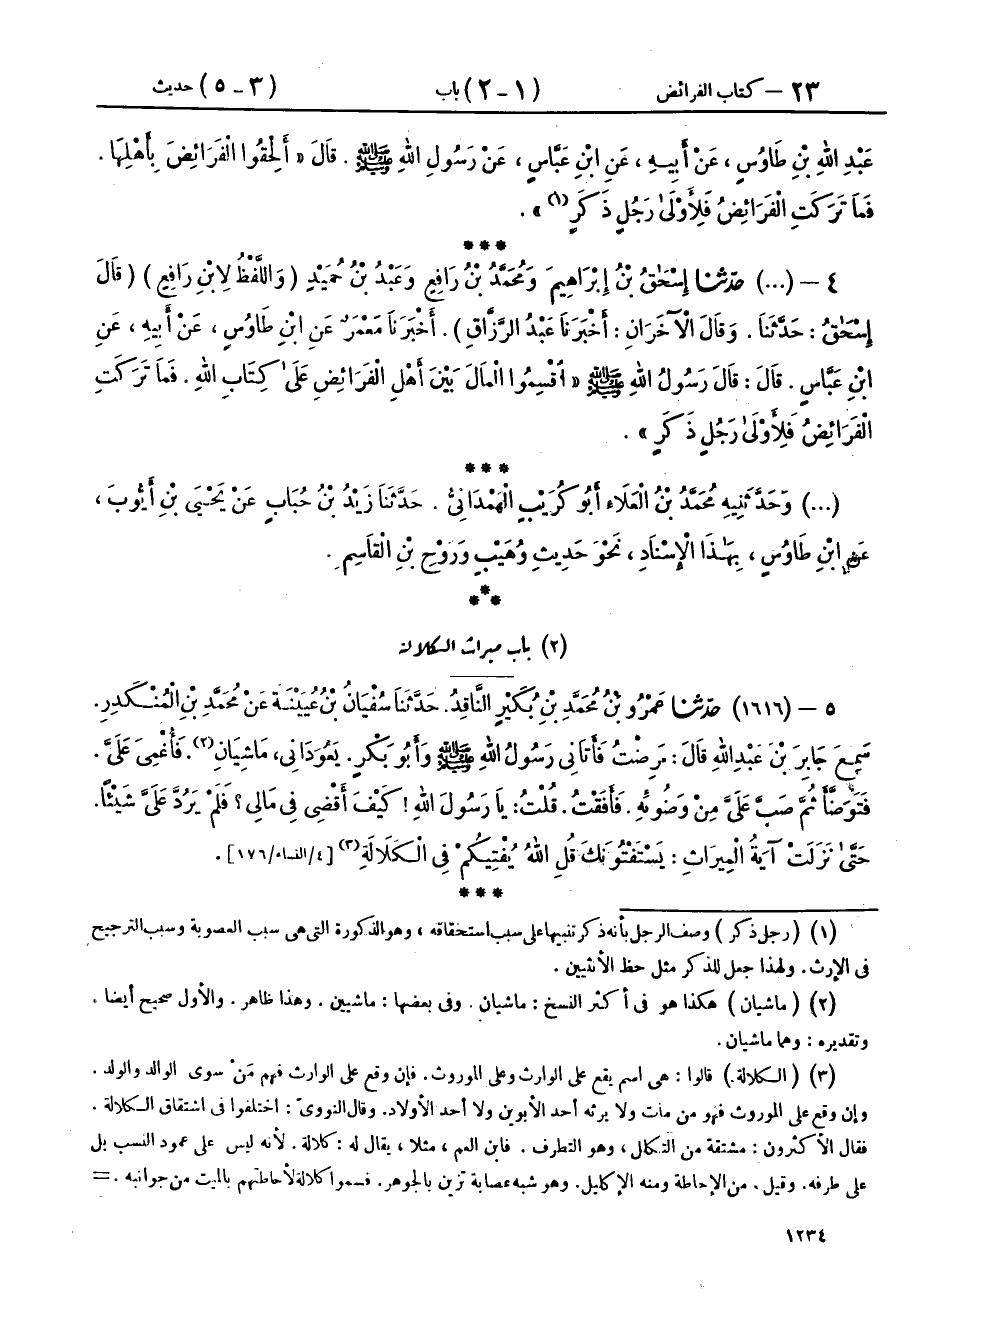 ٢٣ – كتاب الفرائض (١ - ٢) باب (٣ - ٥) حديث
عَبْدِ اللهِ بْنِ طَاوُسٍ ، عَنْ أَبِيهِ ، عَنِ ابْنِ عَبَّاسٍ ، عَنْ رَسُولِ اللهِ ﷺ . قَالَ « أَلْحِقُوا الْفَرَائِضَ بِأَهْلِهَا .
فَمَا تَرَكَتِ الْفَرَائِضُ فَلِأَوْلَىٰ رَجُلٍ ذَكَرٍ (١) » .
***
٤ – (...) حَدَّثَنَا إِسْحَٰقُ بْنُ إِبْرَاهِيمَ وَمُحَمَّدُ بْنُ رَافِعٍ وَعَبْدُ بْنُ حُمَيْدٍ ( وَاللَّفْظُ لِابْنِ رَافِعٍ ) ( قَالَ
إِسْحَٰقُ : حَدَّثَنَا . وَقَالَ الْآخَرَانِ : أَخْبَرَنَا عَبْدُ الرَّزَّاقِ ) . أَخْبَرَنَا مَعْمَرٌ عَنِ ابْنِ طَاوُسٍ ، عَنْ أَبِيهِ ، عَنِ
ابْنِ عَبَّاسٍ . قَالَ : قَالَ رَسُولُ اللهِ ﷺ « اقْسِمُوا الْمَالَ بَيْنَ أَهْلِ الْفَرَائِضِ عَلَىٰ كِتَابِ اللهِ . فَمَا تَرَكَتِ
الْفَرَائِضُ فَلِأَوْلَىٰ رَجُلٍ ذَكَرٍ » .
***
(...) وَحَدَّثَنِيهِ مُحَمَّدُ بْنُ الْعَلَاءِ أَبُو كُرَيْبٍ الْهَمْدَانِيُّ . حَدَّثَنَا زَيْدُ بْنُ حُبَابٍ عَنْ يَحْيَىٰ بْنِ أَيُّوبَ ،
عَنِ ابْنِ طَاوُسٍ ، بِهَٰذَا الْإِسْنَادِ ، نَحْوَ حَدِيثِ وُهَيْبٍ وَرَوْحِ بْنِ الْقَاسِمِ .
***
(٢) باب ميراث الكلالة
٥ – (١٦١٦) حَدَّثَنَا عَمْرُو بْنُ مُحَمَّدِ بْنِ بُكَيْرٍ النَّاقِدُ. حَدَّثَنَا سُفْيَانُ بْنُ عُيَيْنَةَ عَنْ مُحَمَّدِ بْنِ الْمُنْكَدِرِ.
سَمِعَ جَابِرَ بْنَ عَبْدِ اللهِ قَالَ : مَرِضْتُ فَأَتَانِي رَسُولُ اللهِ ﷺ وَأَبُو بَكْرٍ. يَعُودَانِي، مَاشِيَانِ (٢). فَأُغْمِيَ عَلَيَّ .
فَتَوَضَّأَ ثُمَّ صَبَّ عَلَيَّ مِنْ وَضُوئِهِ . فَأَفَقْتُ . قُلْتُ : يَا رَسُولَ اللهِ ! كَيْفَ أَقْضِي فِي مَالِي ؟ فَلَمْ يَرُدَّ عَلَيَّ شَيْئًا.
حَتَّىٰ نَزَلَتْ آيَةُ الْمِيرَاثِ : يَسْتَفْتُونَكَ قُلِ اللهُ يُفْتِيكُمْ فِي الْكَلَالَةِ (٣) [٤/النساء/١٧٦] .
***
(١) ( رجل ذكر ) وصف الرجل بأنه ذكر تنبيها على سبب استحقاقه ، وهو الذكورة التى هى سبب العصوبة وسبب الترجيح
فى الإرث. ولهذا جعل للذكر مثل حظ الأنثيين .
(٢) ( ماشيان ) هكذا هو فى أكثر النسخ : ماشيان . وفى بعضها : ماشيين . وهذا ظاهر . والأول صحيح أيضا .
وتقديره : وهما ماشيان .
(٣) ( الكلالة ) قالوا : هى اسم يقع على الوارث وعلى الموروث . فإن وقع على الوارث فهم مَنْ سوى الوالد والولد .
وإن وقع على الموروث فهو من مات ولا يرثه أحد الأبوين ولا أحد الأولاد. وقال النووىّ : اختلفوا فى اشتقاق الكلالة .
فقال الأكثرون : مشتقة من التكلل ، وهو التطرف . فابن العم ، مثلا ، يقال له : كلالة . لأنه ليس على عمود النسب بل
على طرفه. وقيل . من الإحاطة ومنه الإكليل. وهو شبه عصابة تزين بالجوهر. فسموا كلالة لأحاطتهم بالميت من جوانبه . =
١٢٣٤